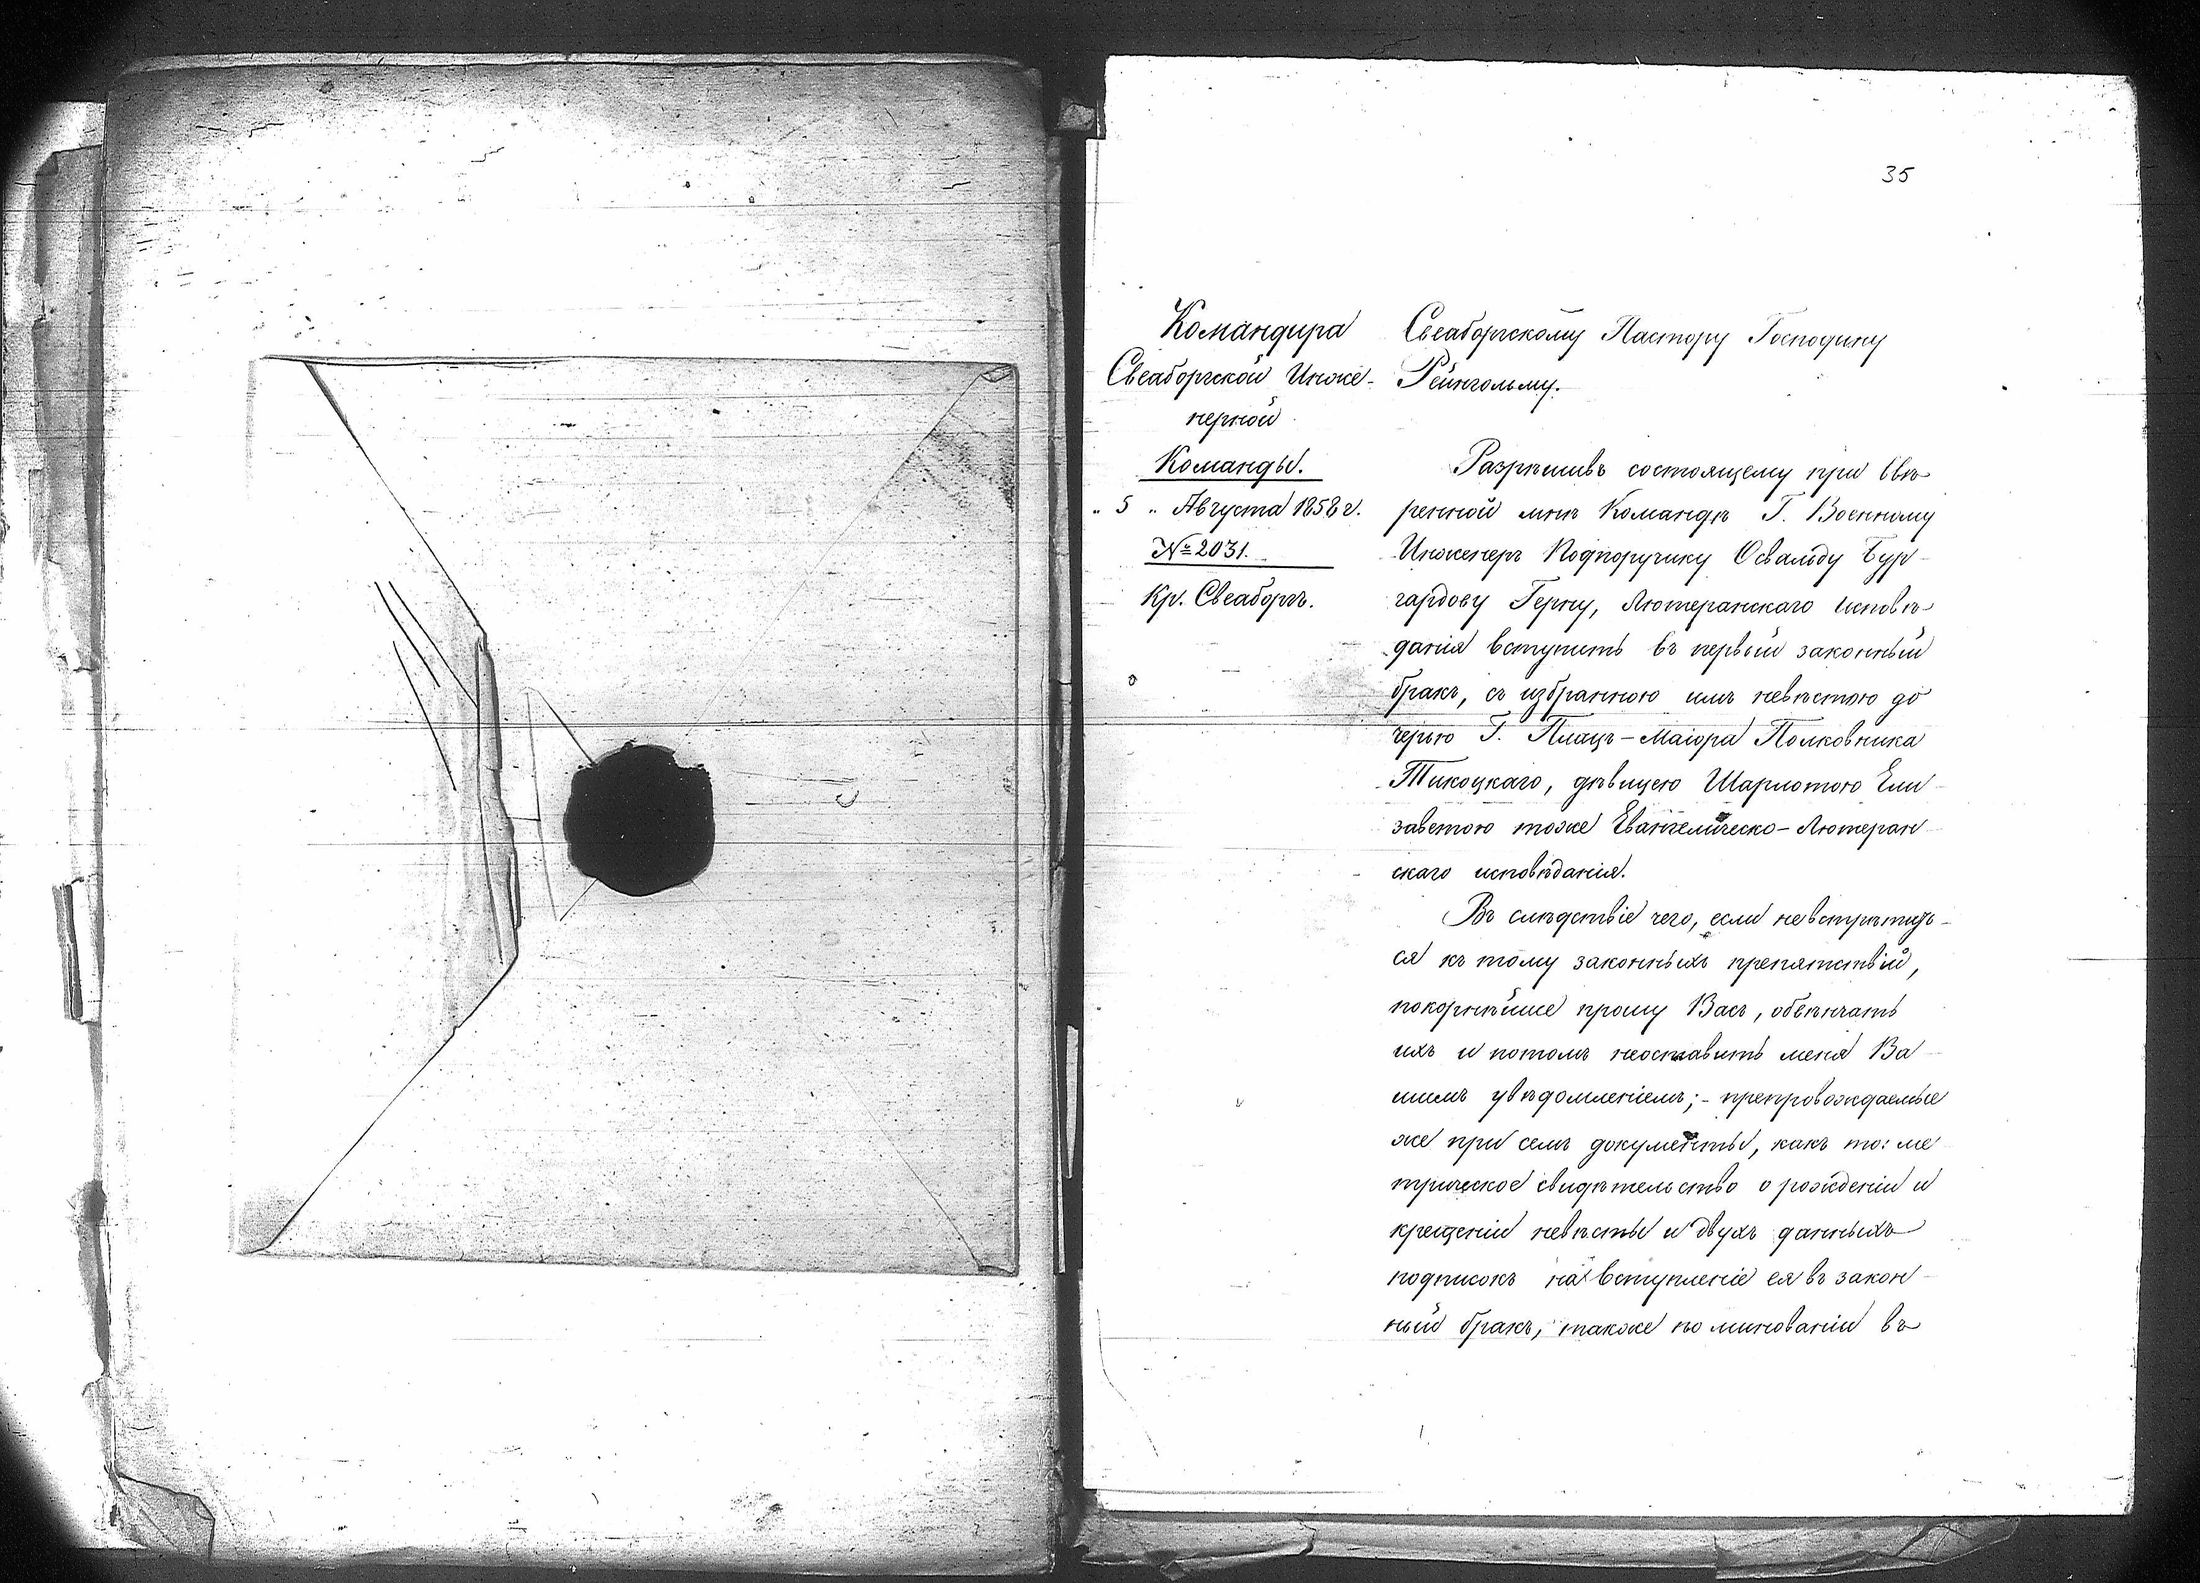 35
Командира
Свеаборгской Инже-
нерной
Команды.
„ 5 „ Августа 1858 г.
№ 2031.
Кр. Свеаборгъ.
Свеаборгскому Пастору Господину
Рейнгольму.
Разрѣшивъ состоящему при ввѣ-
ренной мнѣ Командѣ Г. Военному
Инженеръ Подпоручику Освальду Бур-
гардову Герну, Лютеранскаго исповѣ-
данія вступить въ первый законный
бракъ, съ избранною имъ невѣстою до
черью Г. Плацъ-Маіора Полковника
Тикоцкаго, дѣвицею Шарлотою Ели-
заветою тоже Евангелическо-Лютеран-
скаго исповѣданія.
Въ слѣдствіе чего, если невстрѣтит-
ся къ тому законныхъ препятствій,
покорнѣйше прошу Васъ, обвѣнчать
ихъ и потомъ неоставить меня Ва-
шимъ увѣдомленіемъ; - препровождаемые
же при семъ документы, какъ то: ме-
трическое свидѣтельство о рожденіи и
крещеніи невѣсты и двухъ данныхъ
подписокъ на вступленіе ея въ закон-
ный бракъ, также по минованіи въ